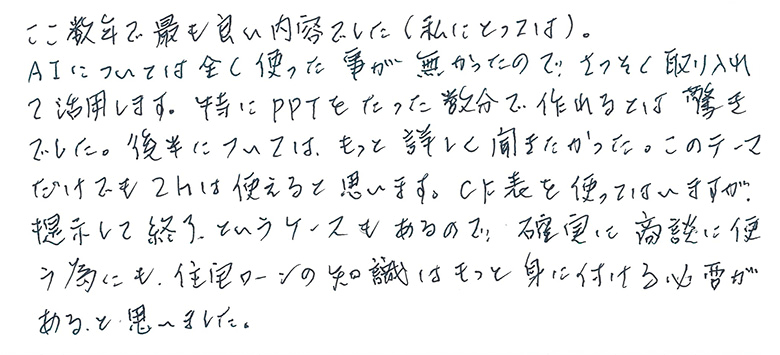 ここ数年で最も良い内容でした(私にとっては)。
AIについては全く使った事が無かったので、さっそく取り入れ
て活用します。特にPPTをたった数分で作れるとは驚き
でした。後半については、もっと詳しく聞きたかった。このテーマ
だけでも2hは使えると思います。CF表を使ってはいますが、
提示して終了、というケースもあるので、確実に商談に使
う為にも、住宅ローンの知識はもっと身に付ける必要が
ある、と思いました。